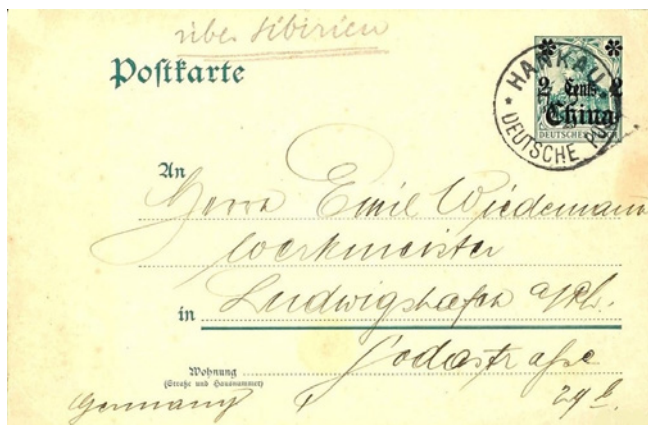 über Sibirien
Postkarte
HANKAU
DEUTSCHE
2 Cents 2
China
DEUTSCHES
An
Herrn Emil Wiedemann
Werkmeister
in Ludwigshafen a/Rh.
Wohnung
(Straße und Hausnummer)
Germany